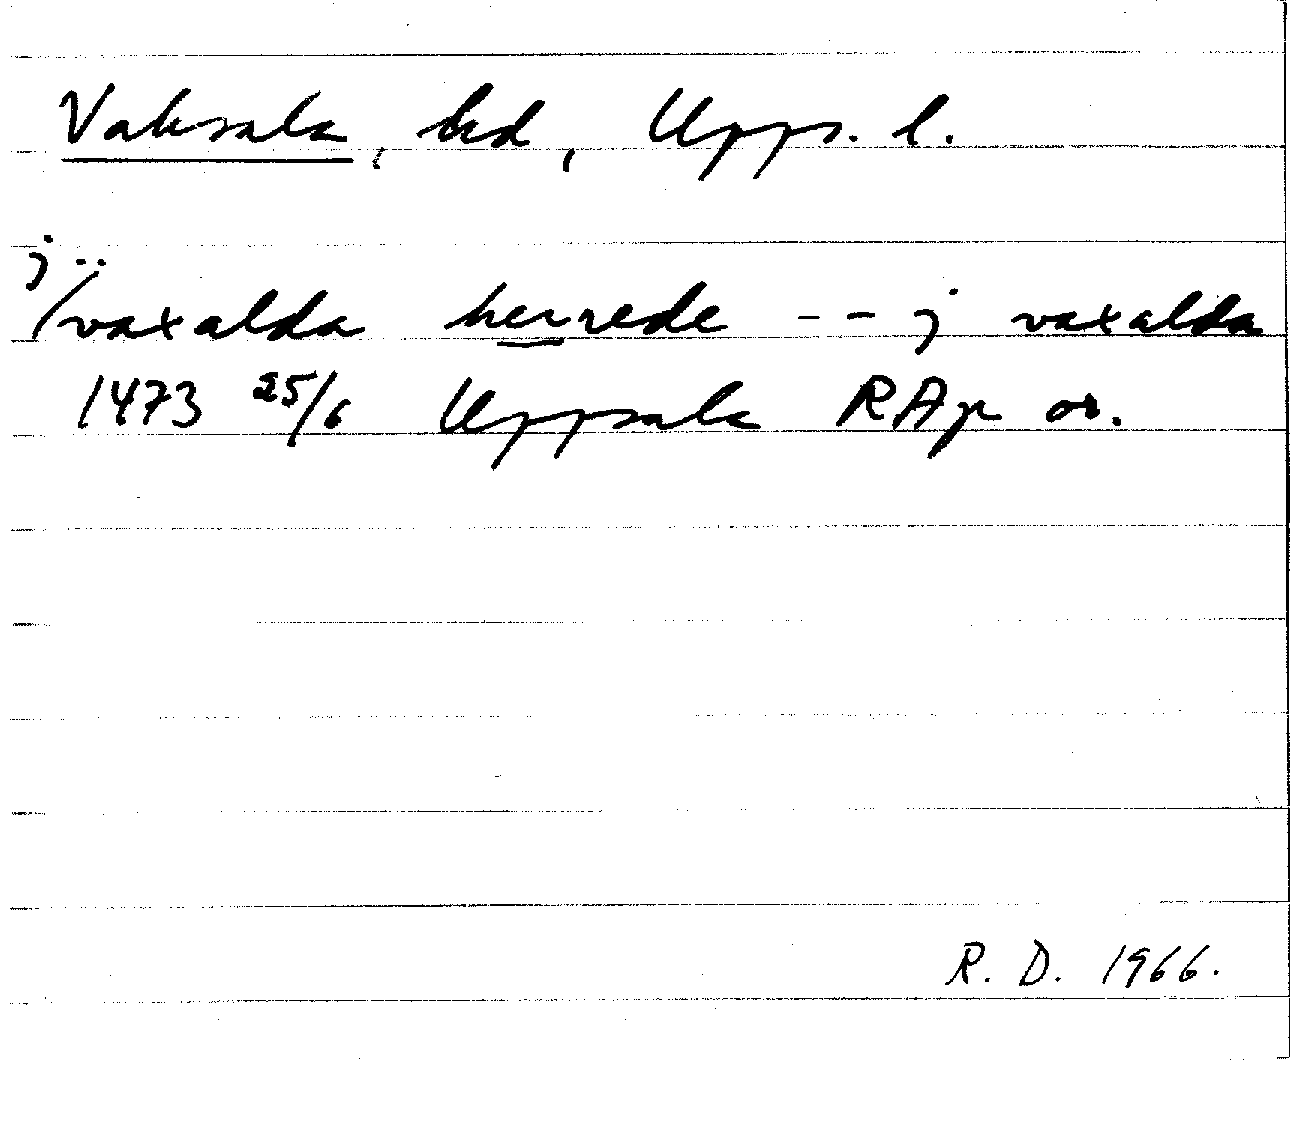 Vaksala, hd, Upps. l.
j..
/vaxalda herrede -- j vaxalda
1473 25/6 Uppsala RAp or.
R. D. 1966.